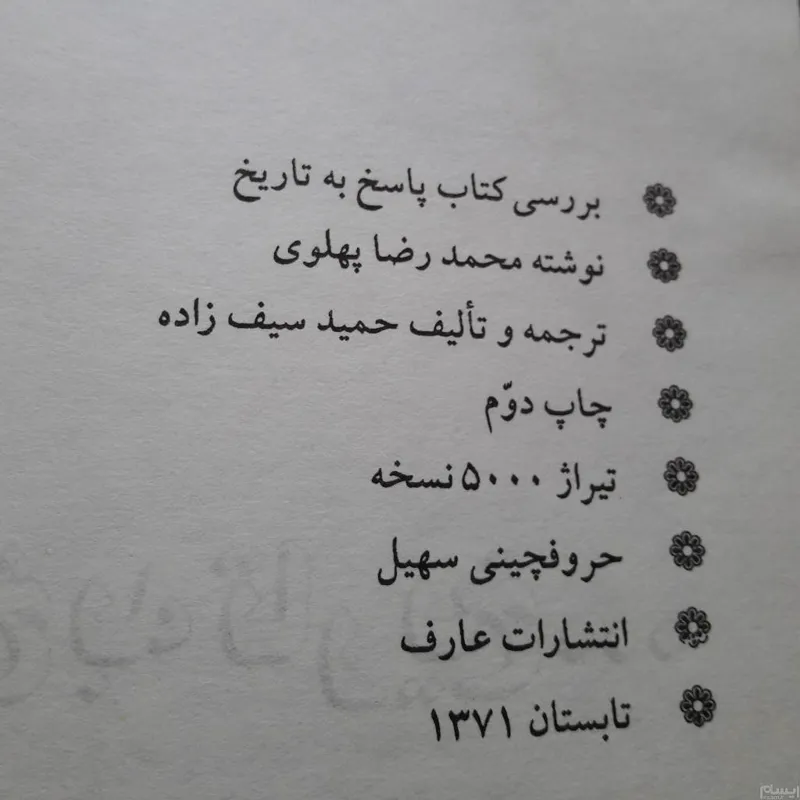 بررسی کتاب پاسخ به تاریخ
نوشته محمد رضا پهلوی
ترجمه و تألیف حمید سیف زاده
چاپ دوّم
تیراژ ۵۰۰۰ نسخه
حروفچینی سهیل
انتشارات عارف
تابستان ۱۳۷۱
ایسام